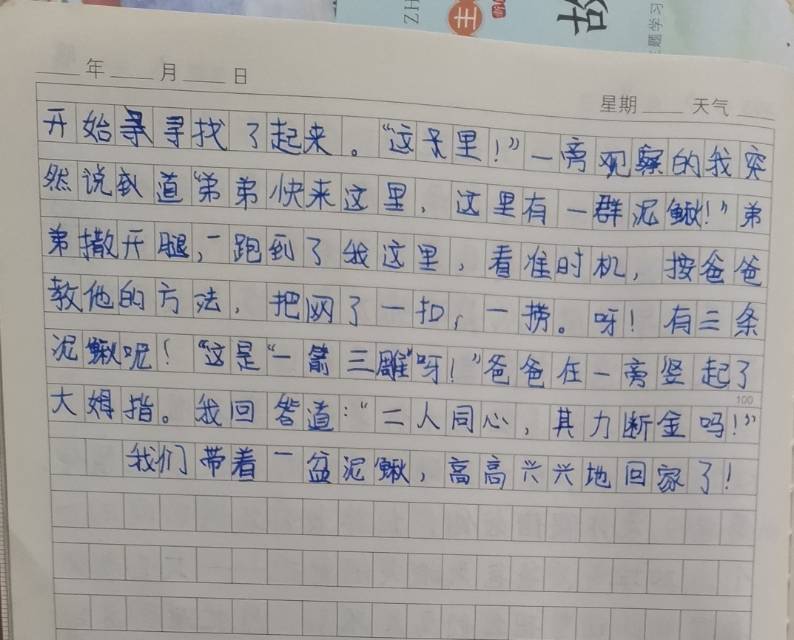 ZH
主
题学习
年 月 日
星期 天气
开始寻寻找了起来。“这是里!”一旁观察的我突
然说到道“弟弟快来这里,这里有一群泥鳅!”弟
弟撒开腿,一跑到了我这里,看准时机,按爸爸
教他的方法,把网了一扣,一捞。呀!有三条
泥鳅呢!“这是“一箭三雕”呀!”爸爸在一旁竖起了
大姆指。我回答道:“二人同心,其力断金吗!”
100
我们带着一盆泥鳅,高高兴兴地回家了!